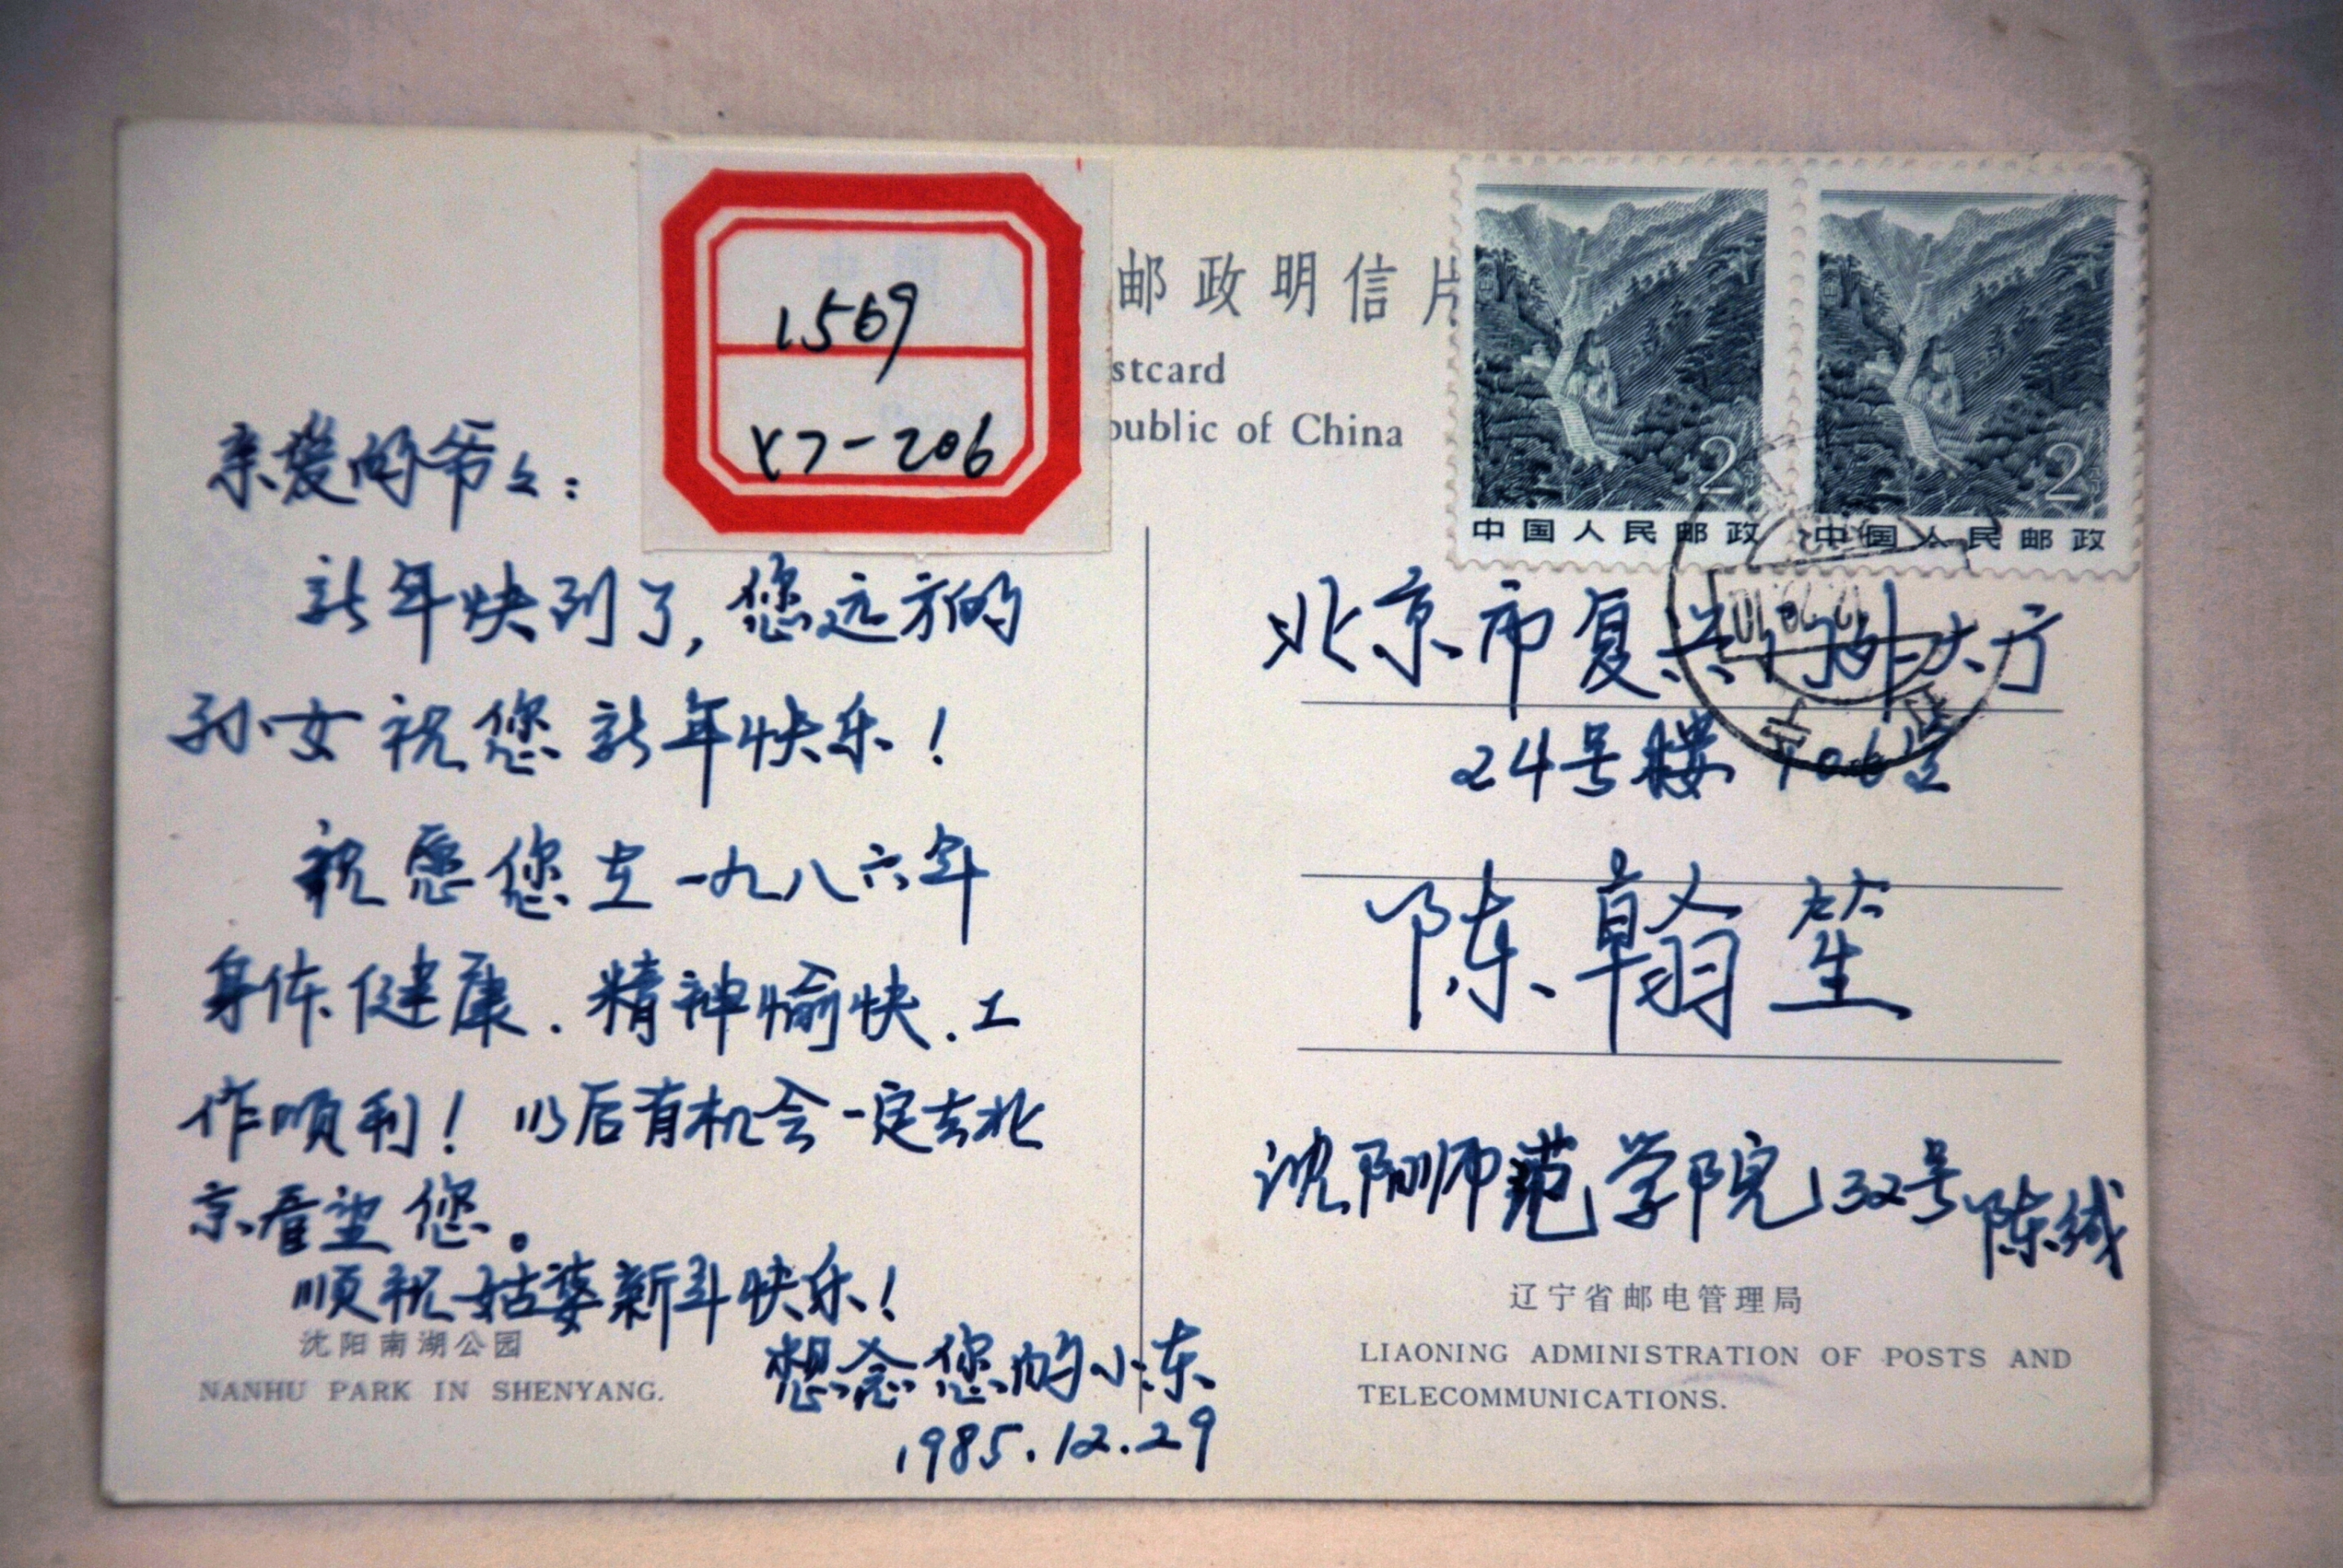 1569
Y7-206
邮政明信片
stcard
public of China
2
2
中国人民邮政
中国人民邮政
亲爱的爷々：
新年快到了，您远方的
孙女祝您新年快乐！
祝愿您在一九八六年
身体健康．精神愉快．工
作顺利！以后有机会一定去北
京看望您。
顺祝姑婆新年快乐！
想念您的小东
1985.12.29
沈阳南湖公园
NANHU PARK IN SHENYANG.
北京市复兴门外大方
24号楼
陈翰笙
沈阳师范学院132号陈绒
辽宁省邮电管理局
LIAONING ADMINISTRATION OF POSTS AND
TELECOMMUNICATIONS.